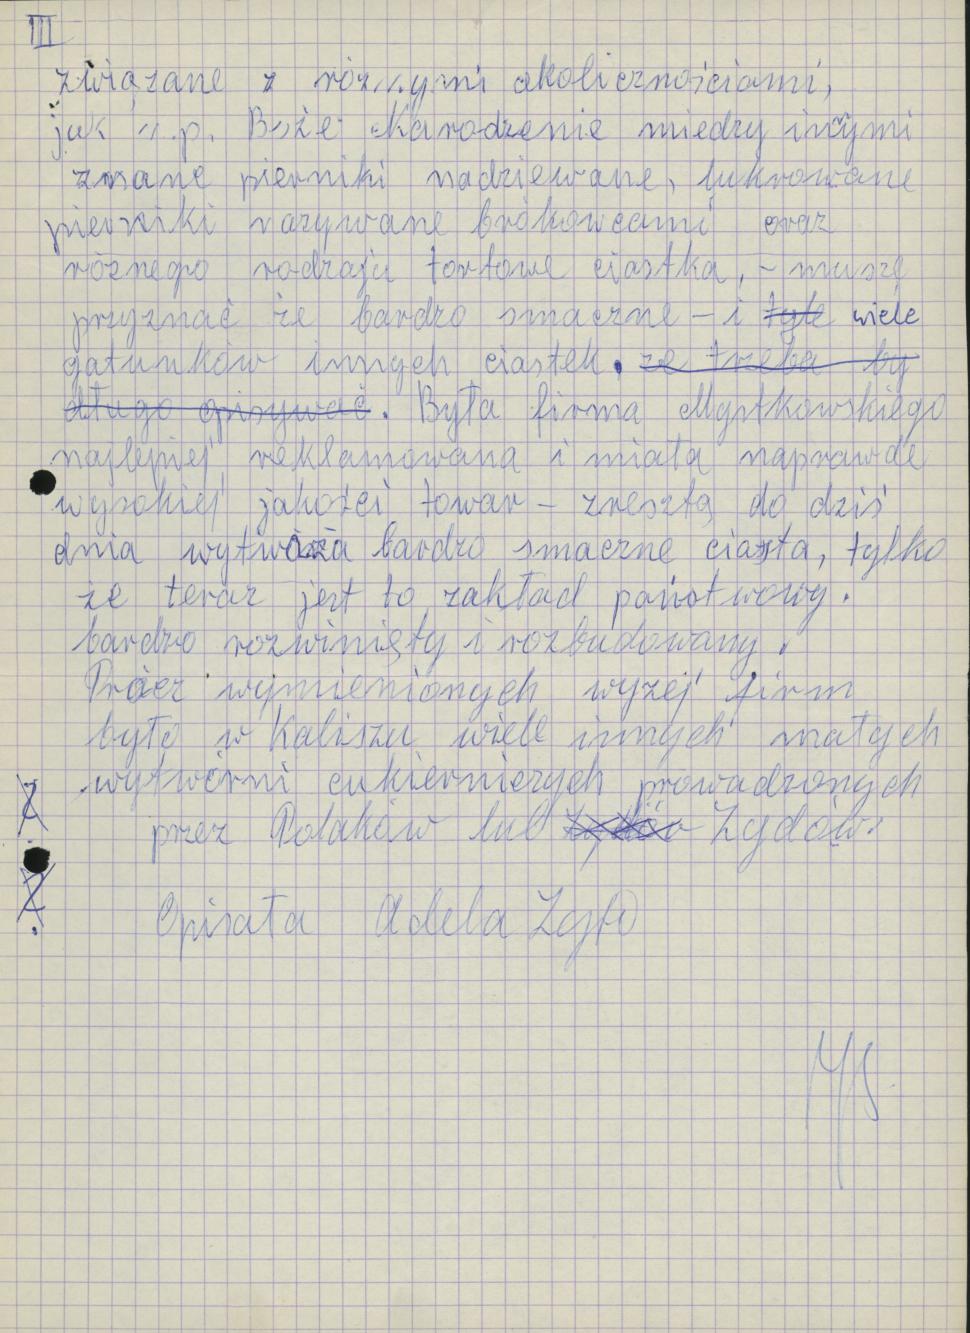 III
związane z różnymi okolicznościami,
jak n.p. Boże Narodzenie miedzy inńymi
znane pierniki nadziewane, lukrowane
pierniki nazywane brukowcami oraz
różnego rodzaju tortowe ciastka, - muszę
przyznać że bardzo smaczne - i tyle wiele
gatunków innych ciastek. że trzeba by
długo opisywać. Była firma Mystkowskiego
najlepiej reklamowana i miała naprawdę
wysokiej jakości towar - zresztą do dziś
dnia wytwarza bardzo smaczne ciasta, tylko
że teraz jest to zakład państwowy.
bardzo rozwinięty i rozbudowany.
Prócz wymienionych wyżej firm
było w Kaliszu wiele innych małych
wytwórni cukierniczych prowadzonych
przez Polaków lub Żydów.
Opisała Adela